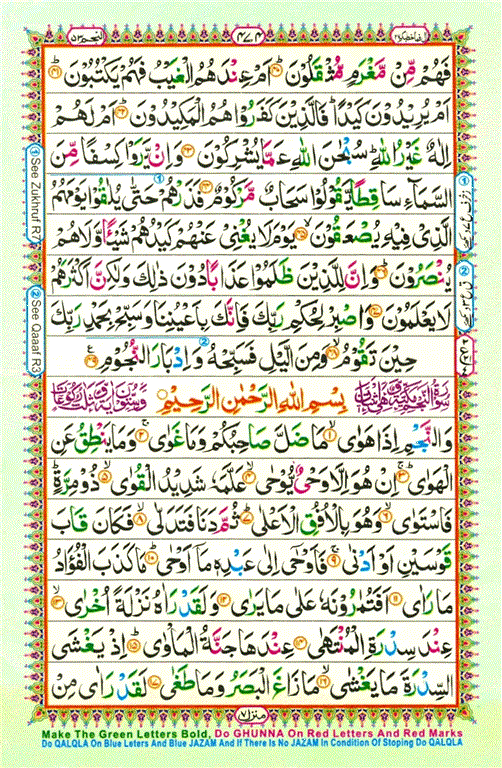 قال فما خطبكم ٢٧
٤٧٤
النجم ٥٣
فَهُمْ مِّنْ مَّغْرَمٍ مُّثْقَلُوْنَ ۝٤٠ اَمْ عِنْدَهُمُ الْغَيْبُ فَهُمْ يَكْتُبُوْنَ ۝٤١
اَمْ يُرِيْدُوْنَ كَيْدًا ؕ فَالَّذِيْنَ كَفَرُوْا هُمُ الْمَكِيْدُوْنَ ۝٤٢ اَمْ لَهُمْ
اِلٰهٌ غَيْرُ اللّٰهِ ؕ سُبْحٰنَ اللّٰهِ عَمَّا يُشْرِكُوْنَ ۝٤٣ وَاِنْ يَّرَوْا كِسْفًا مِّنَ
السَّمَآءِ سَاقِطًا يَّقُوْلُوْا سَحَابٌ مَّرْكُوْمٌ ۝٤٤ فَذَرْهُمْ حَتّٰى يُلٰقُوْا يَوْمَهُمُ
الَّذِيْ فِيْهِ يُصْعَقُوْنَ ۝٤٥ يَوْمَ لَا يُغْنِيْ عَنْهُمْ كَيْدُهُمْ شَيْـًٔا وَّلَا هُمْ
يُنْصَرُوْنَ ۝٤٦ وَاِنَّ لِلَّذِيْنَ ظَلَمُوْا عَذَابًا دُوْنَ ذٰلِكَ وَلٰكِنَّ اَكْثَرَهُمْ
لَا يَعْلَمُوْنَ ۝٤٧ وَاصْبِرْ لِحُكْمِ رَبِّكَ فَاِنَّكَ بِاَعْيُنِنَا وَسَبِّحْ بِحَمْدِ رَبِّكَ
حِيْنَ تَقُوْمُ ۝٤٨ وَمِنَ الَّيْلِ فَسَبِّحْهُ وَاِدْبَارَ النُّجُوْمِ ۝٤٩
بِسْمِ اللّٰهِ الرَّحْمٰنِ الرَّحِيْمِ
وَالنَّجْمِ اِذَا هَوٰى ۝١ مَا ضَلَّ صَاحِبُكُمْ وَمَا غَوٰى ۝٢ وَمَا يَنْطِقُ عَنِ
الْهَوٰى ۝٣ اِنْ هُوَ اِلَّا وَحْيٌ يُّوْحٰى ۝٤ عَلَّمَهٗ شَدِيْدُ الْقُوٰى ۝٥ ذُوْ مِرَّةٍ ؕ
فَاسْتَوٰى ۝٦ وَهُوَ بِالْاُفُقِ الْاَعْلٰى ۝٧ ثُمَّ دَنَا فَتَدَلّٰى ۝٨ فَكَانَ قَابَ
قَوْسَيْنِ اَوْ اَدْنٰى ۝٩ فَاَوْحٰى اِلٰى عَبْدِهٖ مَاۤ اَوْحٰى ۝١٠ مَا كَذَبَ الْفُؤَادُ
مَا رَاٰى ۝١١ اَفَتُمٰرُوْنَهٗ عَلٰى مَا يَرٰى ۝١٢ وَلَقَدْ رَاٰهُ نَزْلَةً اُخْرٰى ۝١٣
عِنْدَ سِدْرَةِ الْمُنْتَهٰى ۝١٤ عِنْدَهَا جَنَّةُ الْمَاْوٰى ۝١٥ اِذْ يَغْشَى
السِّدْرَةَ مَا يَغْشٰى ۝١٦ مَا زَاغَ الْبَصَرُ وَمَا طَغٰى ۝١٧ لَقَدْ رَاٰى مِنْ
منزل ٧
① See Zukhruf R7
② See Qaaaf R3
Make The Green Letters Bold, Do GHUNNA On Red Letters And Red Marks
Do QALQLA On Blue Leters And Blue JAZAM And If There Is No JAZAM In Condition Of Stoping Do QALQLA